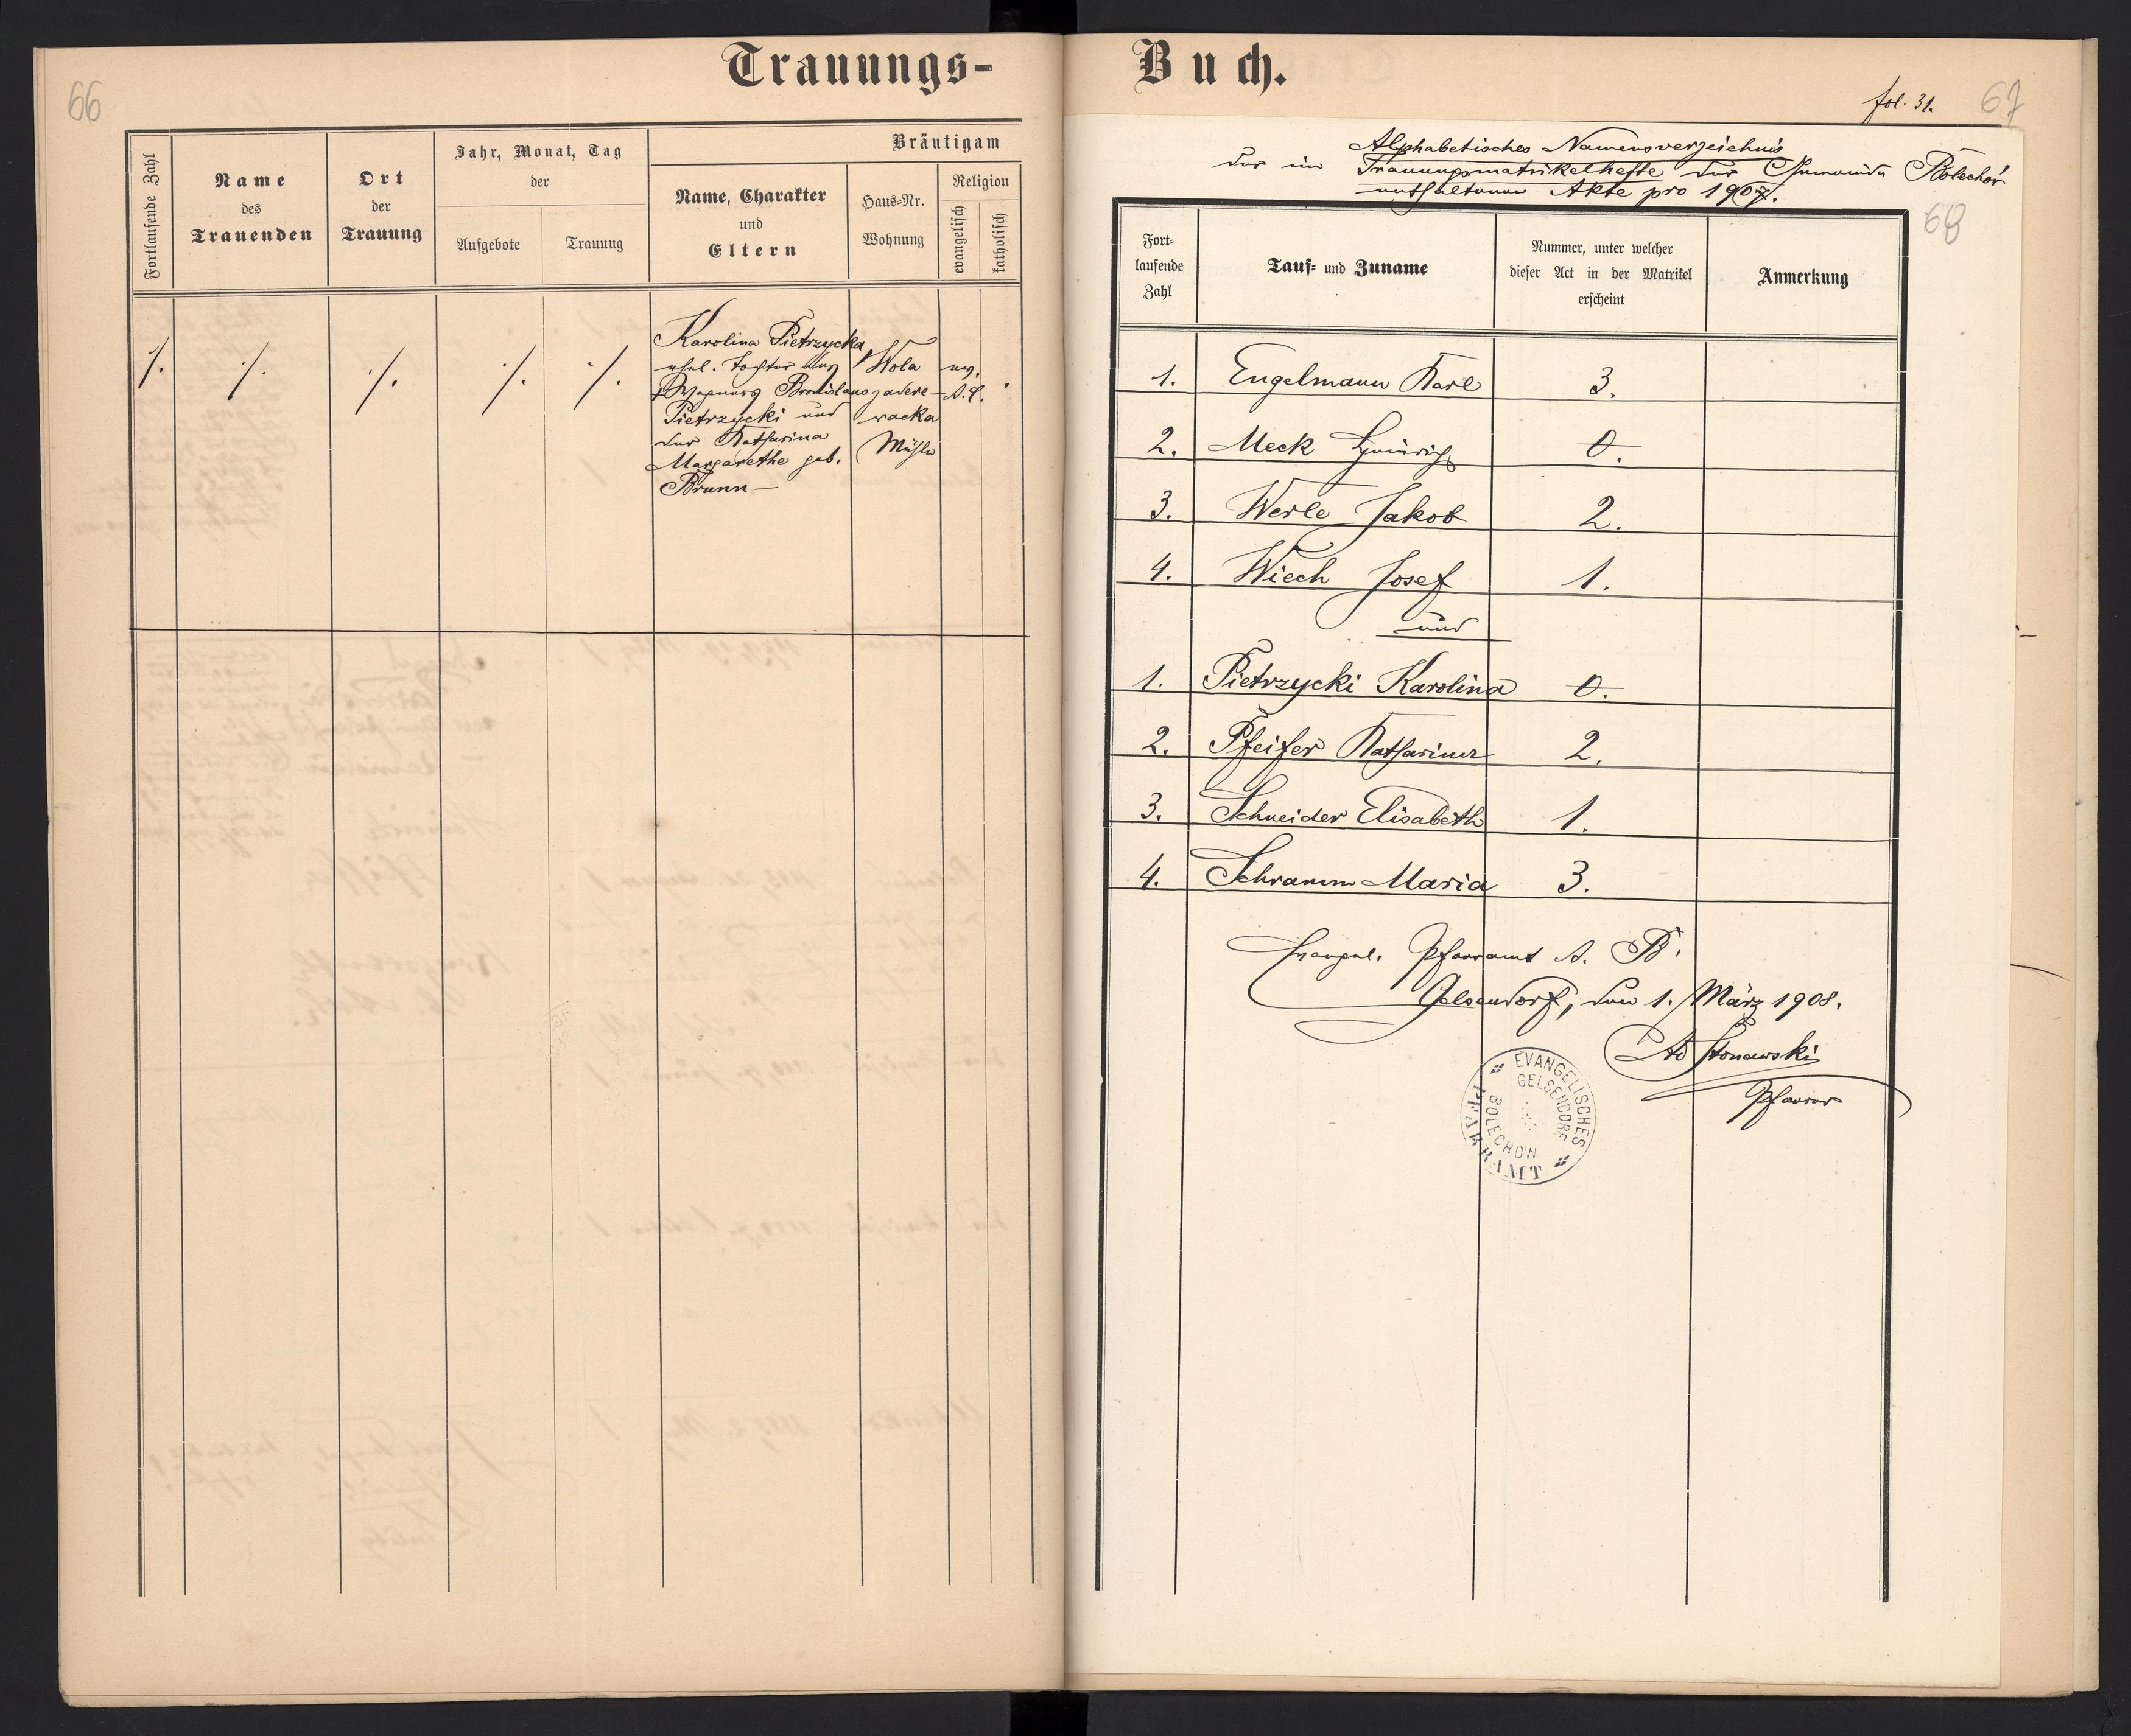 Trauungs-
66
Fortlaufende Zahl
Name
des
Trauenden
Ort
der
Trauung
Jahr, Monat, Tag
der
Aufgebote
Trauung
Bräutigam
Name, Charakter
und
Eltern
Haus-Nr.
Wohnung
Religion
evangelisch
katholisch
·/. ·/. ·/. ·/. ·/.
Karolina Pietrzycka,
ehel. Tochter des
Wagners Bronislaus
Pietrzycki und
der Katharina
Margarethe geb.
Brunn —
Wola
zadere-
wacka
Mühle
ev.
A. C.
Buch.
fol. 31.
67
Alphabetisches Namensverzeichnis
der im Trauungsmatrikelhefte der Gemeinde Bolechów
enthaltenen Akte pro 1907.
68
Fort-
laufende
Zahl
Tauf- und Zuname
Nummer, unter welcher
dieser Act in der Matrikel
erscheint
Anmerkung
1. Engelmann Karl 3.
2. Meck Heinrich 0.
3. Werle Jakob 2.
4. Wiech Josef 1.
und
1. Pietrzycki Karolina 0.
2. Pfeifer Katharina 2.
3. Schneider Elisabeth 1.
4. Schramm Maria 3.
Evangel. Pfarramt A. B.
Gelsendorf, den 1. März 1908.
Pfarrer
EVANGELISCHES
PFARRAMT
GELSENDORF
BOLECHOW